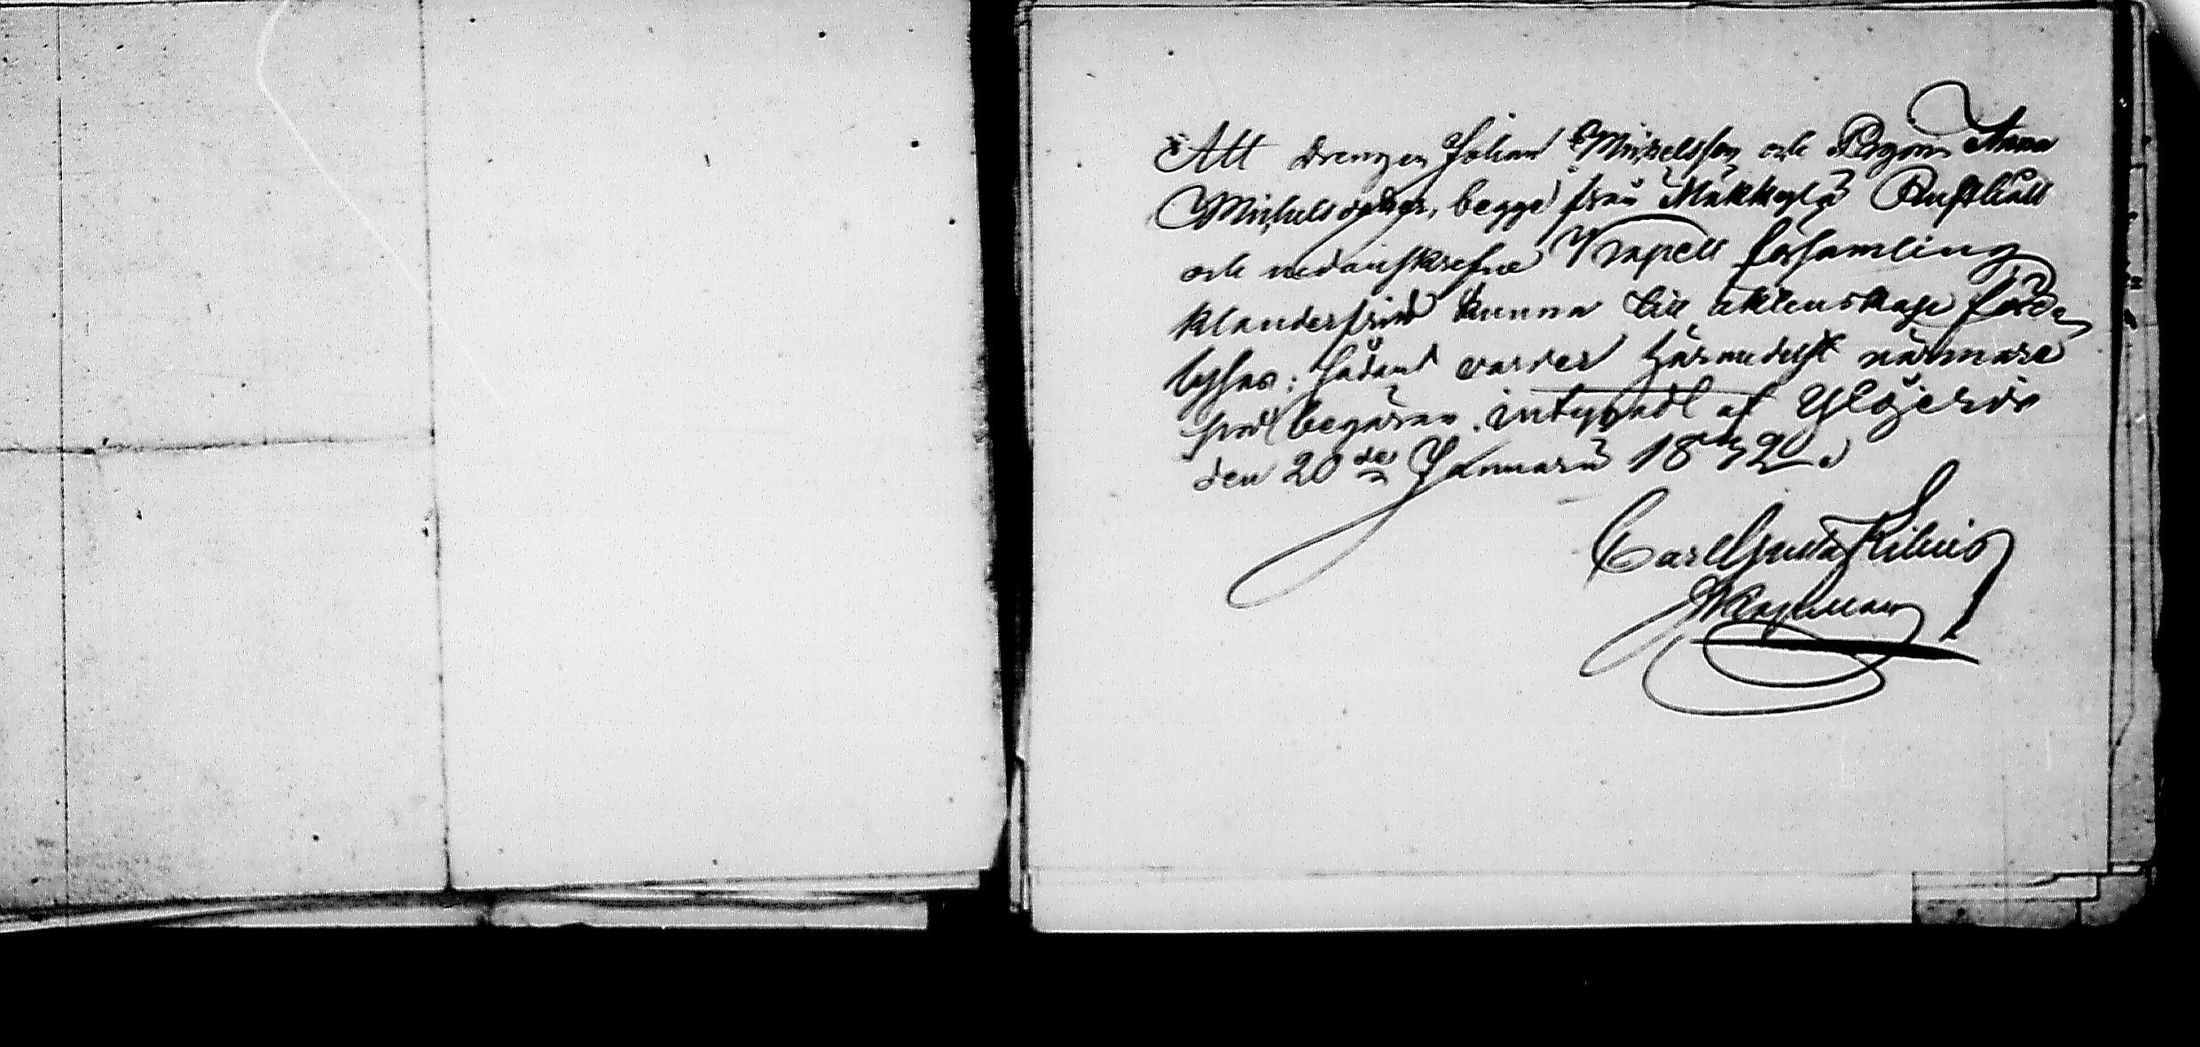 Att Drengen Johan Michelsson och Pigan Anna
Michelsdotter, begge från Mäkkylä Rusthåll
och nedanskrefne Kapell församling
klanderfrit kunna till äktenskap förde
lysas; sådant varder härmedelst närmare
på begäran intygadt af Ylöjervi
den 20de Januarii 1842.
Carl Gusta
Kapellan